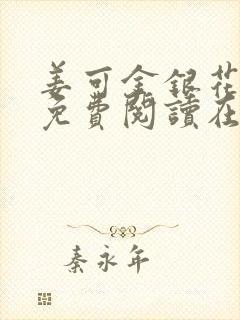 姜可金銀花
免費閱讀在
秦永年